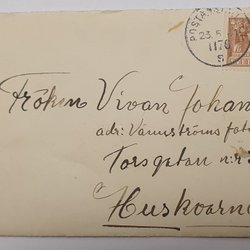 POSTANST
23.5
1176
S
Fröken Vivan Johan
adr: Vännströms fab
Torsgatan n:r 3
Huskvarna